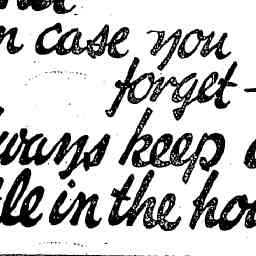 n case you
forget -
ways keep a
tle in the hou